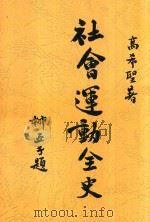 高希聖著
社會運動全史
子題